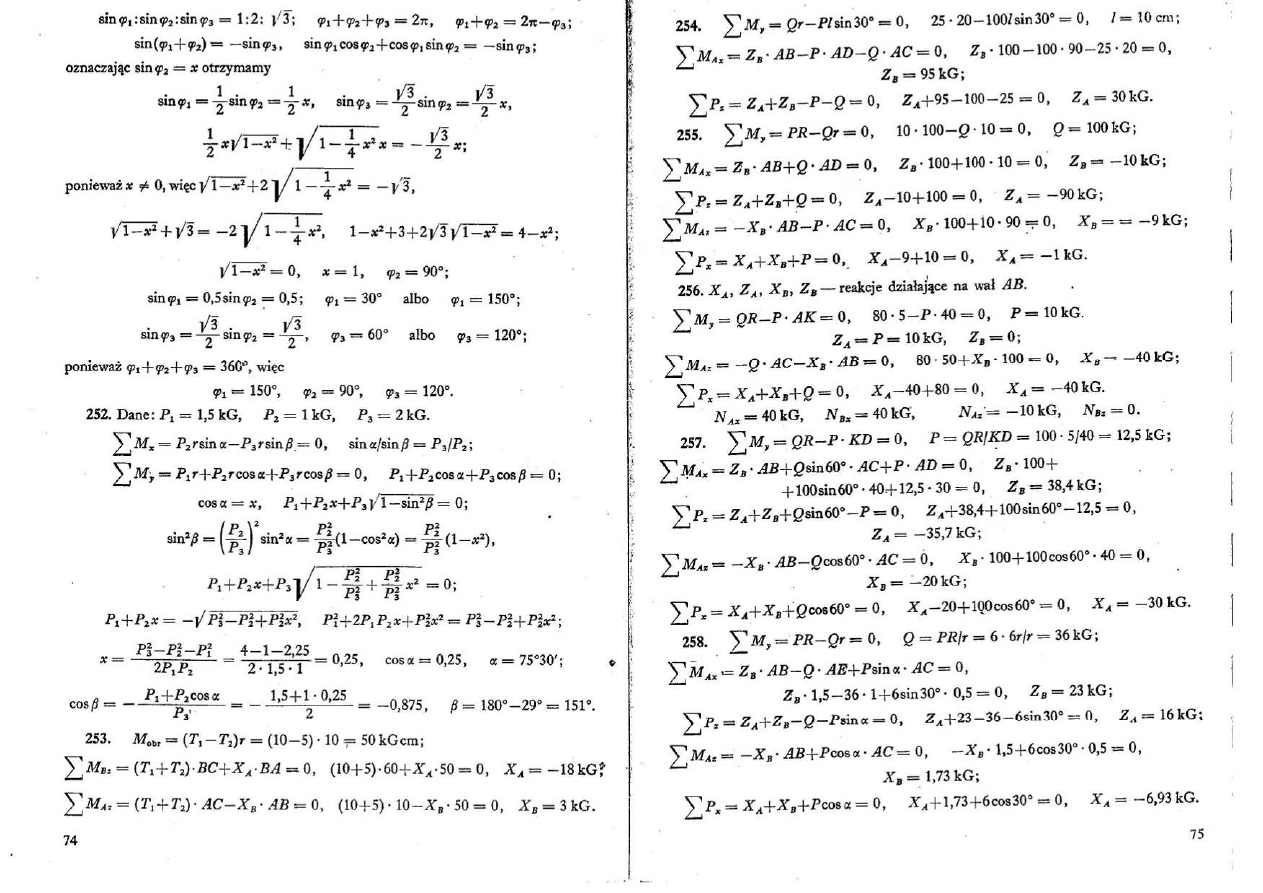 sin φ₁:sin φ₂:sin φ₃ = 1:2: √3;   φ₁+φ₂+φ₃ = 2π,   φ₁+φ₂ = 2π−φ₃;
sin(φ₁+φ₂) = −sin φ₃,   sin φ₁ cos φ₂+cos φ₁ sin φ₂ = −sin φ₃;
oznaczając sin φ₂ = x otrzymamy
sin φ₁ = 1/2 sin φ₂ = 1/2 x,   sin φ₃ = √3/2 sin φ₂ = √3/2 x,
1/2 x√(1−x²) + √(1−1/4 x²) x = −√3/2 x;
ponieważ x ≠ 0, więc √(1−x²)+2√(1−1/4 x²) = −√3,
√(1−x²)+√3 = −2√(1−1/4 x²),   1−x²+3+2√3 √(1−x²) = 4−x²;
√(1−x²) = 0,   x = 1,   φ₂ = 90°;
sin φ₁ = 0,5 sin φ₂ = 0,5;   φ₁ = 30°   albo   φ₁ = 150°;
sin φ₃ = √3/2 sin φ₂ = √3/2,   φ₃ = 60°   albo   φ₃ = 120°;
ponieważ φ₁+φ₂+φ₃ = 360°, więc
φ₁ = 150°,   φ₂ = 90°,   φ₃ = 120°.
252. Dane: P₁ = 1,5 kG,   P₂ = 1 kG,   P₃ = 2 kG.
∑Mₓ = P₂r sin α−P₃r sin β = 0,   sin α/sin β = P₃/P₂;
∑M_y = P₁r+P₂r cos α+P₃r cos β = 0,   P₁+P₂ cos α+P₃ cos β = 0;
cos α = x,   P₁+P₂x+P₃√(1−sin²β) = 0;
sin²β = (P₂/P₃)² sin²α = P₂²/P₃² (1−cos²α) = P₂²/P₃² (1−x²),
P₁+P₂x+P₃√(1−P₂²/P₃²+P₂²/P₃² x²) = 0;
P₁+P₂x = −√(P₃²−P₂²+P₂²x²),   P₁²+2P₁P₂x+P₂²x² = P₃²−P₂²+P₂²x²;
x = (P₃²−P₂²−P₁²)/(2P₁P₂) = (4−1−2,25)/(2·1,5·1) = 0,25,   cos α = 0,25,   α = 75°30′;
cos β = −(P₁+P₂ cos α)/P₃ = −(1,5+1·0,25)/2 = −0,875,   β = 180°−29° = 151°.
253.   M_obr = (T₁−T₂)r = (10−5)·10 = 50 kGcm;
∑M_Bz = (T₁+T₂)·BC+X_A·BA = 0,   (10+5)·60+X_A·50 = 0,   X_A = −18 kG;
∑M_Az = (T₁+T₂)·AC−X_B·AB = 0,   (10+5)·10−X_B·50 = 0,   X_B = 3 kG.
74
254.   ∑M_y = Qr−Pl sin 30° = 0,   25·20−100l sin 30° = 0,   l = 10 cm;
∑M_Ax = Z_B·AB−P·AD−Q·AC = 0,   Z_B·100−100·90−25·20 = 0,
Z_B = 95 kG;
∑P_z = Z_A+Z_B−P−Q = 0,   Z_A+95−100−25 = 0,   Z_A = 30 kG.
255.   ∑M_y = PR−Qr = 0,   10·100−Q·10 = 0,   Q = 100 kG;
∑M_Ax = Z_B·AB+Q·AD = 0,   Z_B·100+100·10 = 0,   Z_B = −10 kG;
∑P_z = Z_A+Z_B+Q = 0,   Z_A−10+100 = 0,   Z_A = −90 kG;
∑M_Az = −X_B·AB−P·AC = 0,   X_B·100+10·90 = 0,   X_B = = −9 kG;
∑P_x = X_A+X_B+P = 0,   X_A−9+10 = 0,   X_A = −1 kG.
256. X_A, Z_A, X_B, Z_B — reakcje działające na wał AB.
∑M_y = QR−P·AK = 0,   80·5−P·40 = 0,   P = 10 kG.
Z_A = P = 10 kG,   Z_B = 0;
∑M_Az = −Q·AC−X_B·AB = 0,   80·50+X_B·100 = 0,   X_B = −40 kG;
∑P_x = X_A+X_B+Q = 0,   X_A−40+80 = 0,   X_A = −40 kG.
N_Ax = 40 kG,   N_Bx = 40 kG,   N_Az = −10 kG,   N_Bz = 0.
257.   ∑M_y = QR−P·KD = 0,   P = QR/KD = 100·5/40 = 12,5 kG;
∑M_Ax = Z_B·AB+Q sin 60°·AC+P·AD = 0,   Z_B·100+
+100 sin 60°·40+12,5·30 = 0,   Z_B = 38,4 kG;
∑P_z = Z_A+Z_B+Q sin 60°−P = 0,   Z_A+38,4+100 sin 60°−12,5 = 0,
Z_A = −35,7 kG;
∑M_Az = −X_B·AB−Q cos 60°·AC = 0,   X_B·100+100 cos 60°·40 = 0,
X_B = −20 kG;
∑P_x = X_A+X_B+Q cos 60° = 0,   X_A−20+100 cos 60° = 0,   X_A = −30 kG.
258.   ∑M_y = PR−Qr = 0,   Q = PR/r = 6·6r/r = 36 kG;
∑M_Ax = Z_B·AB−Q·AE+P sin α·AC = 0,
Z_B·1,5−36·1+6 sin 30°·0,5 = 0,   Z_B = 23 kG;
∑P_z = Z_A+Z_B−Q−P sin α = 0,   Z_A+23−36−6 sin 30° = 0,   Z_A = 16 kG;
∑M_Az = −X_B·AB+P cos α·AC = 0,   −X_B·1,5+6 cos 30°·0,5 = 0,
X_B = 1,73 kG;
∑P_x = X_A+X_B+P cos α = 0,   X_A+1,73+6 cos 30° = 0,   X_A = −6,93 kG.
75